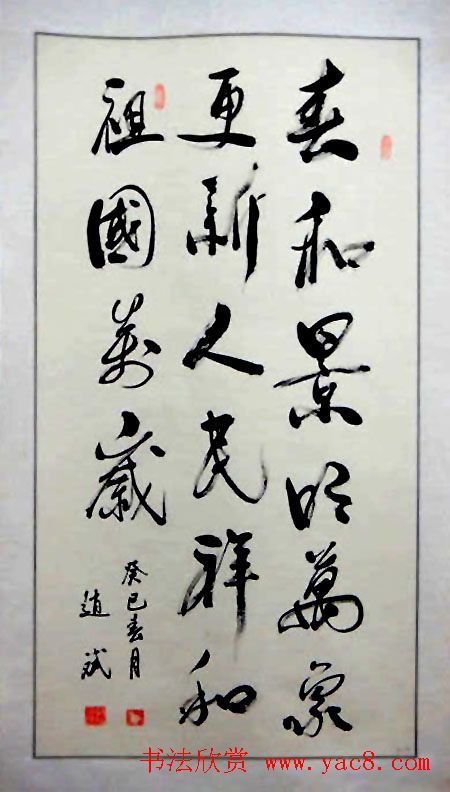 春和景明萬象
更新人民祥和
祖國萬歲
癸巳春月
趙斌
书法欣赏 www.yac8.com